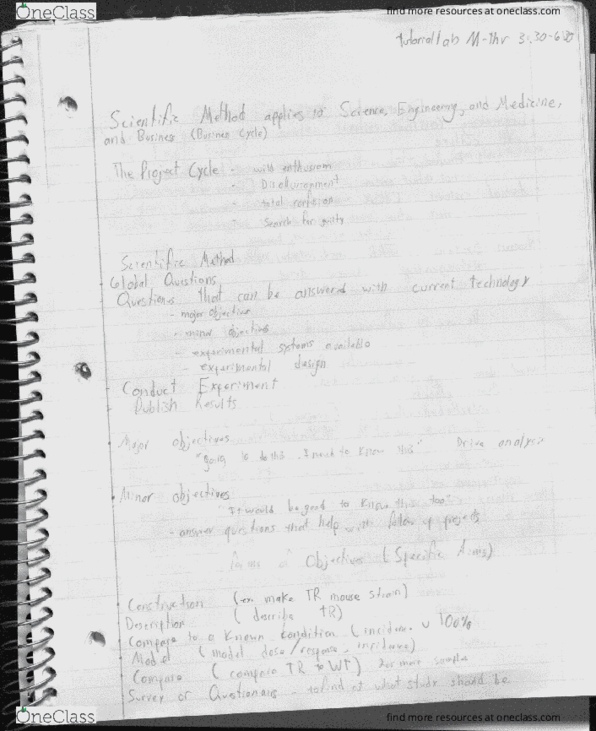 OneClass
find more resources at oneclass.com
Tutorial/lab M-Thr 3:30-6:20
Scientific Method applies to Science, Engineering, and Medicine,
and Business (Business Cycle)
The Project Cycle - wild enthusiasm
- Disillusionment
- total confusion
- Search for guilty
Scientific Method
Global Questions
Questions that can be answered with current technology
- major objective
- minor objectives
- experimental systems available
- experimental design
Conduct Experiment
Publish Results
Major objectives
"going to do this. I need to know this" Drive analysis
Minor objectives
"It would be good to know this too"
- answer questions that help with follow up projects
of Objectives (Specific Aims)
Construction (ex make TR mouse strain)
Description (describe TR)
Compare to a known condition (incidence 100%
Model (model dose/response, incidence)
Compare (compare TR to WT) for more samples
Survey or Questionaire - to find out what study should be
OneClass
find more resources at oneclass.com